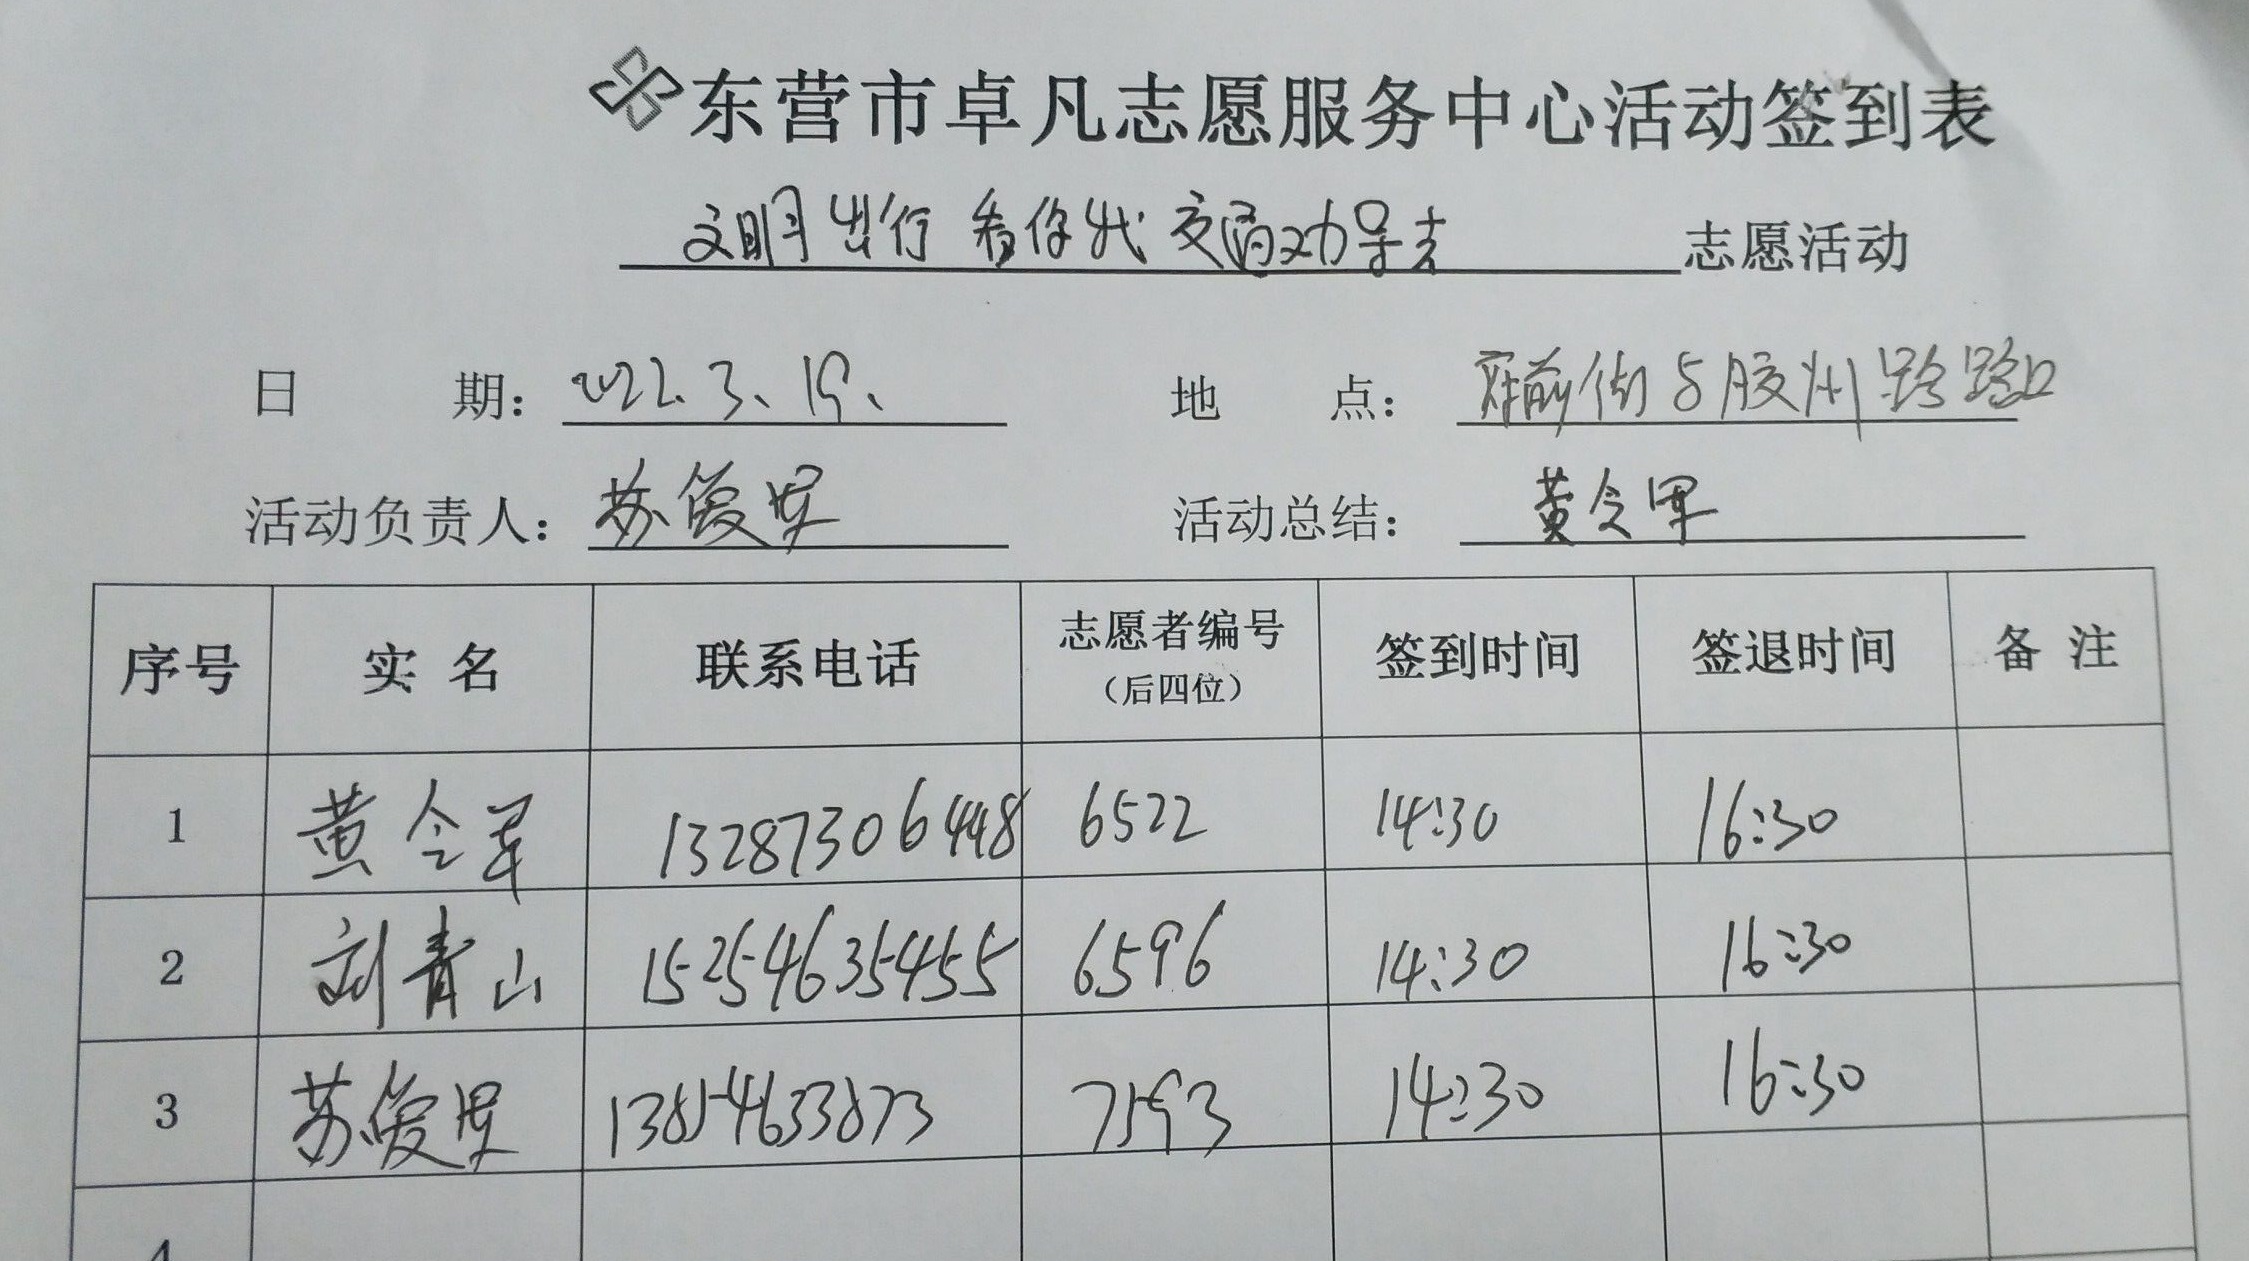 东营市卓凡志愿服务中心活动签到表
文明出行 看你我 交通劝导去 志愿活动
日 期: 2022.3.19. 地 点: 府前街与胶州路路口
活动负责人: 苏俊 活动总结: 黄令军
序号 实 名 联系电话 志愿者编号 (后四位) 签到时间 签退时间 备 注
1 黄令军 13287306448 6522 14:30 16:30
2 刘青山 15254635455 6596 14:30 16:30
3 苏俊 13854633873 7593 14:30 16:30
4